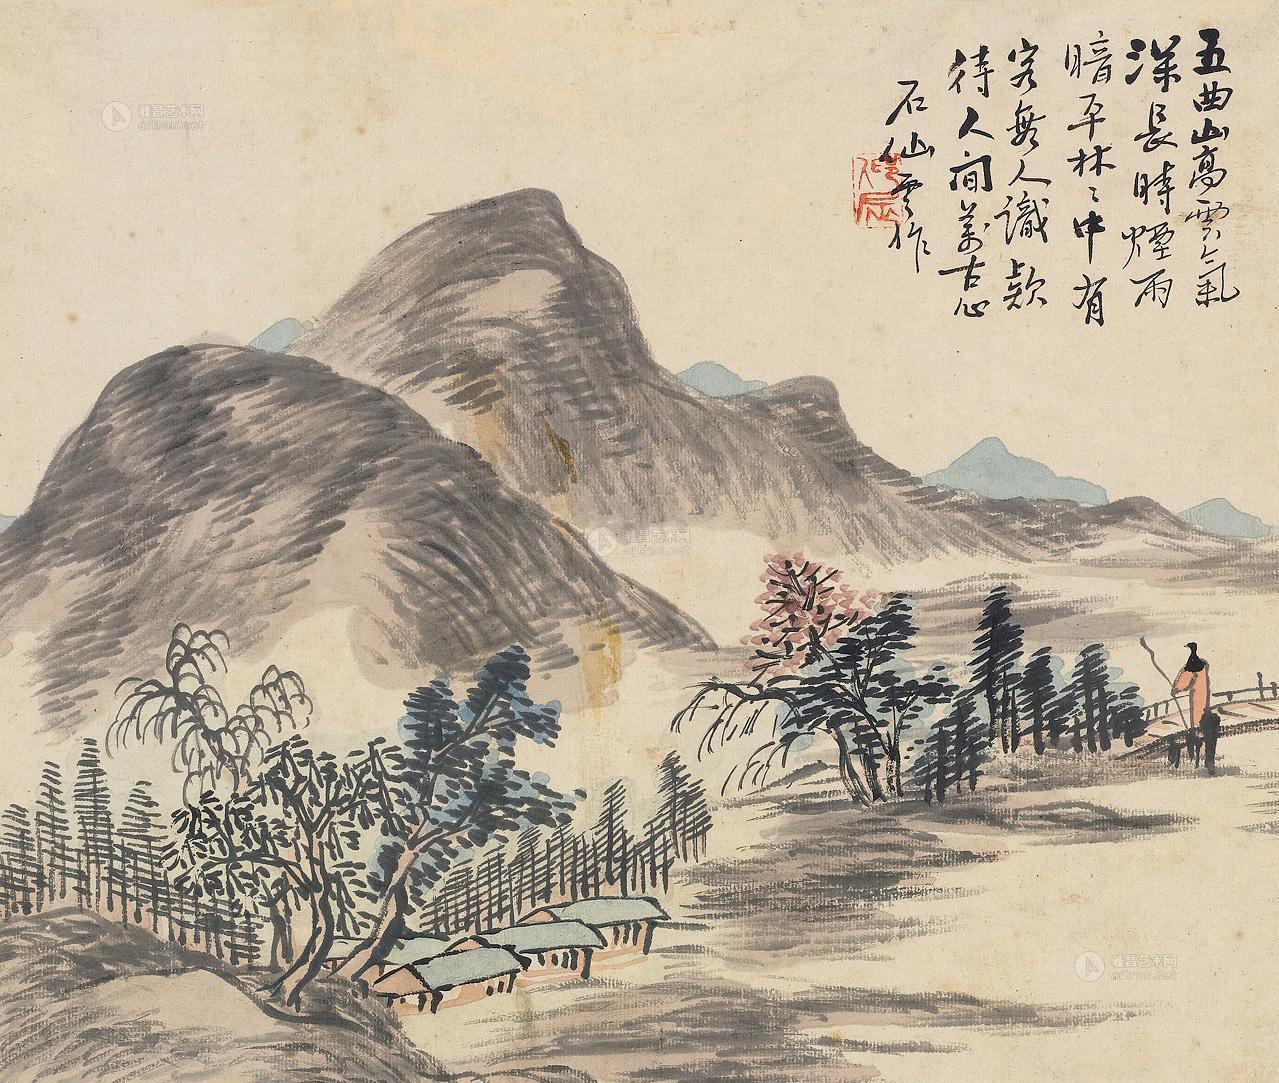 五曲山高雲氣
深長時煙雨
暗平林〻中有
客無人識欸
待人間萬古心
石仙雲作
雅昌艺术网
artron.net
雅昌艺术网
artron.net
雅昌艺术网
artron.net